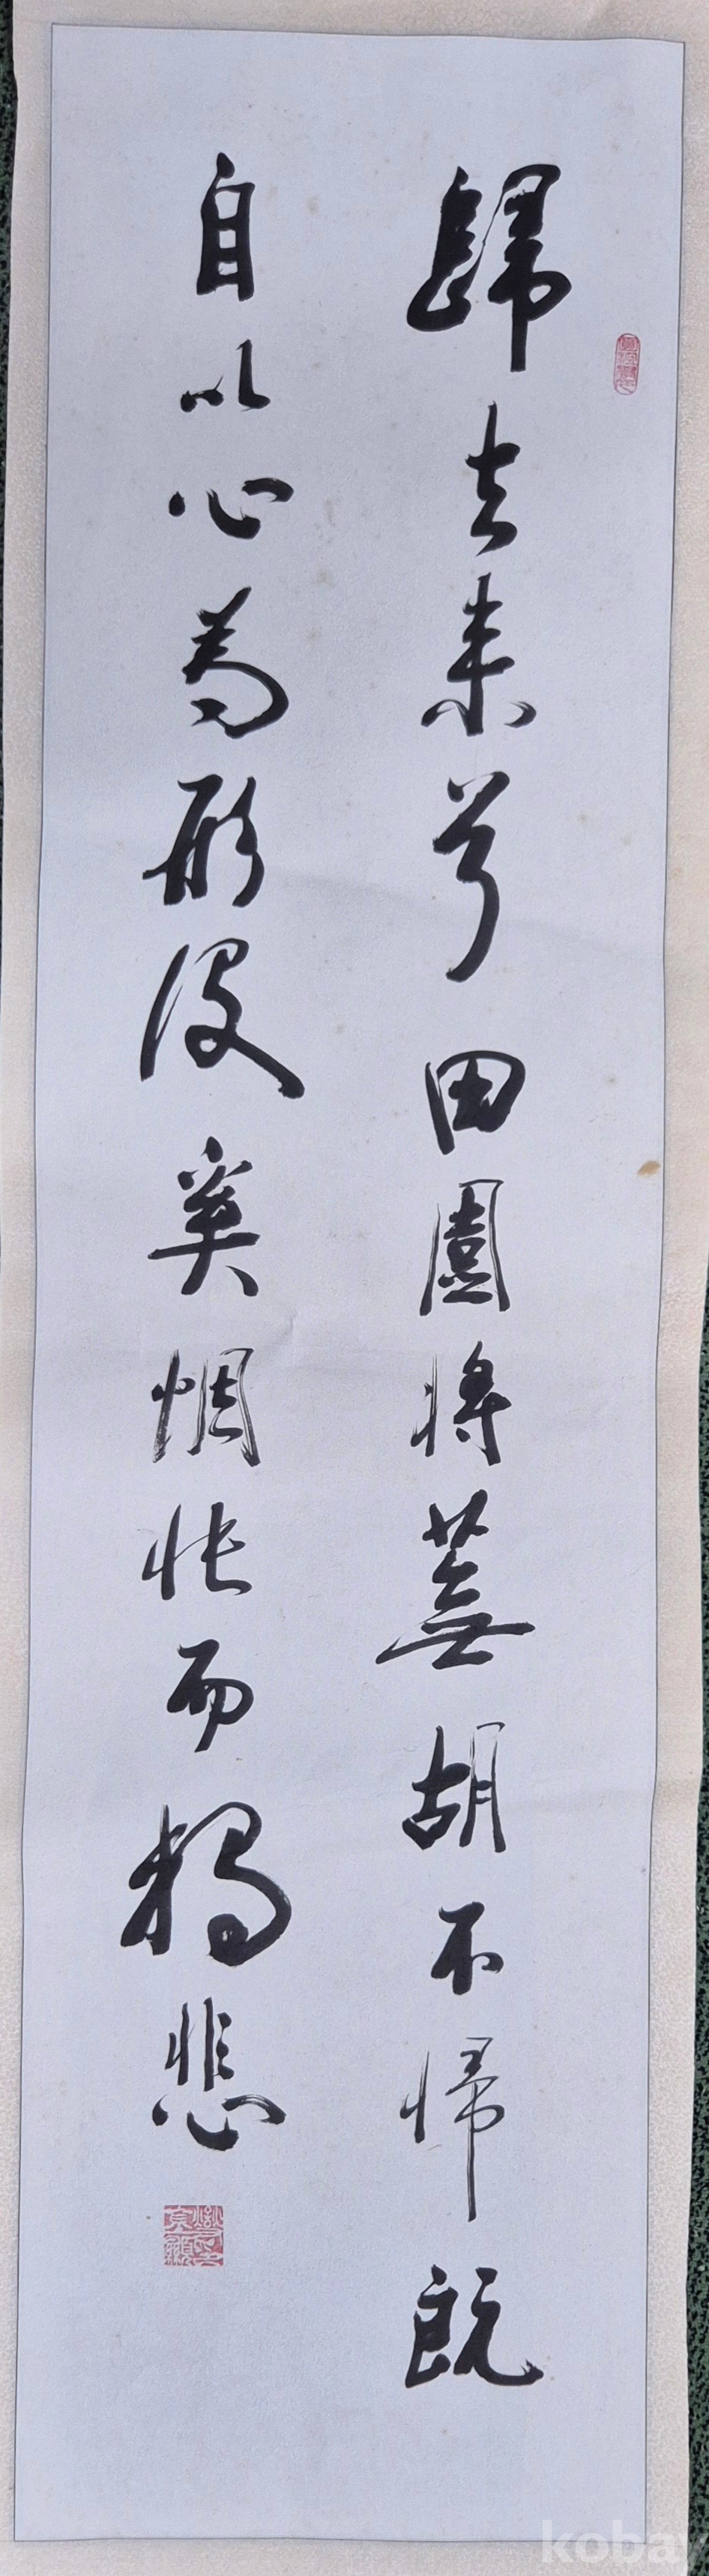 歸去来兮田園将蕪胡不帰既
自以心為形役奚惆悵而独悲
kobay